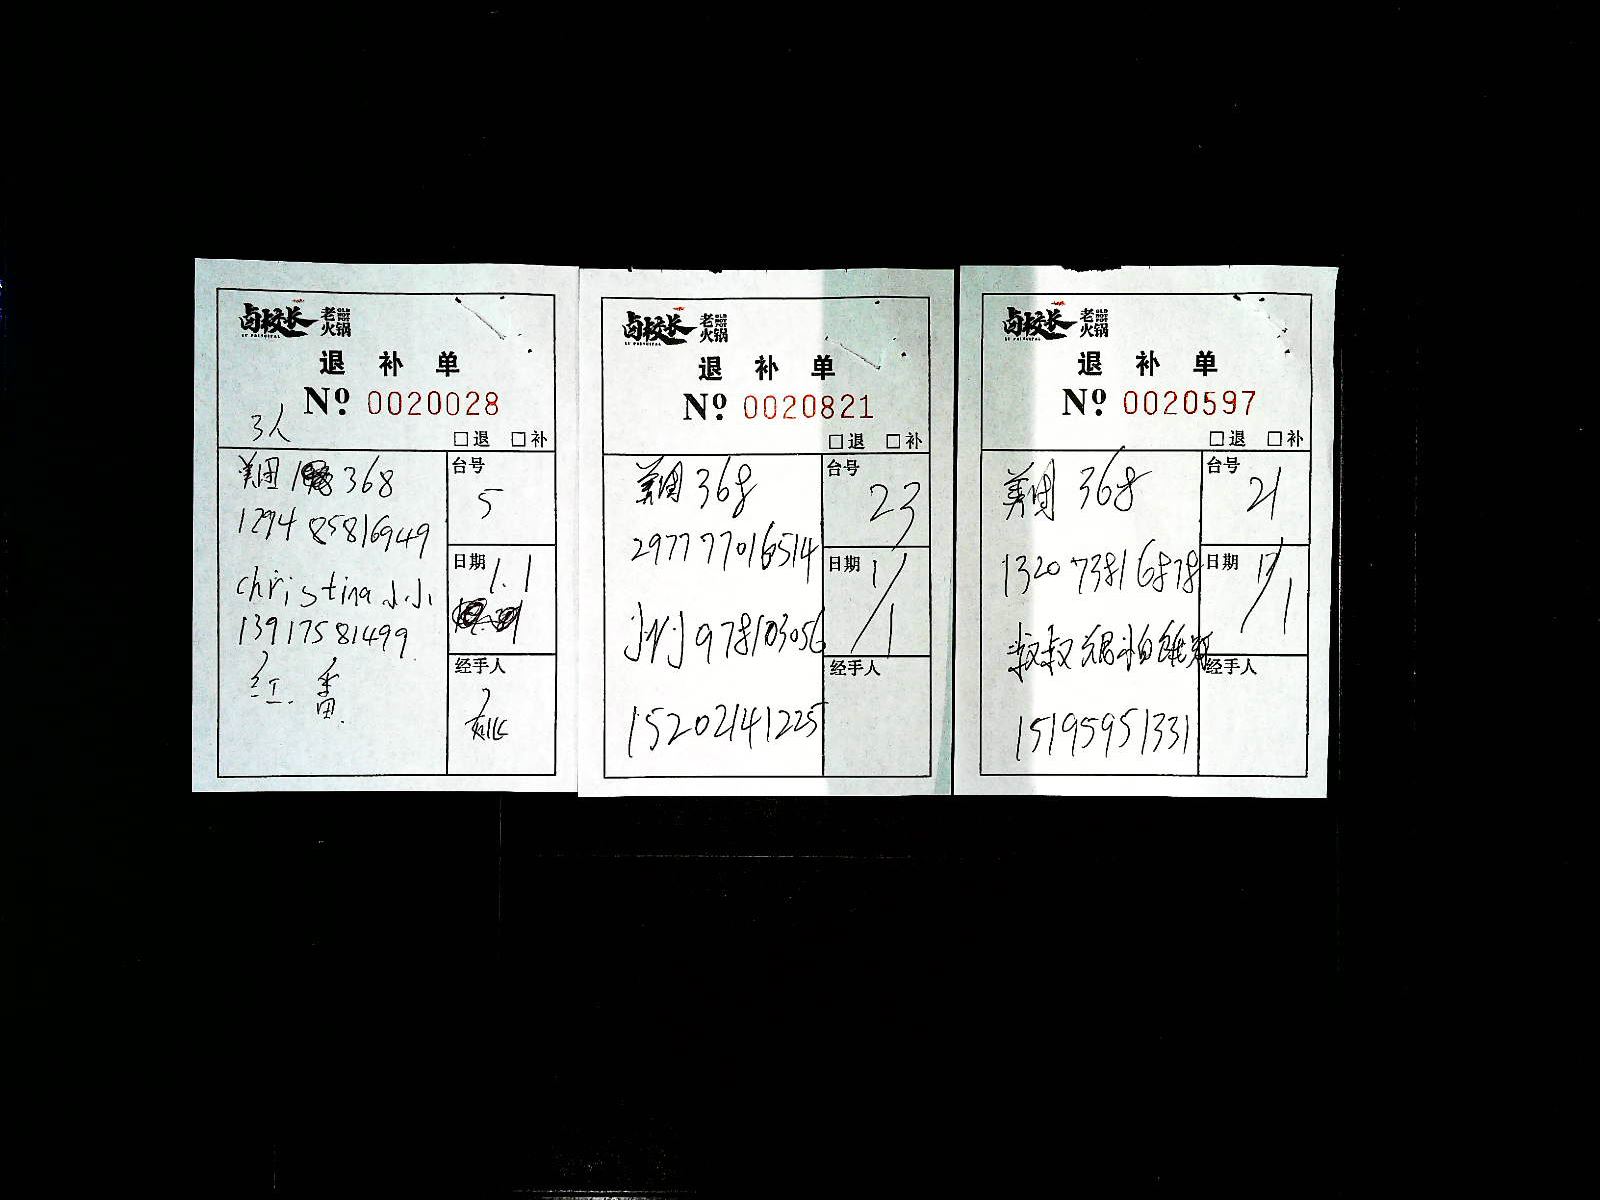 卤校长 老火锅
退 补 单
Nº 0020028
3人
□退 □补
美团 1 368
129485816949
christina小小
13917581499
红. 番
台号
5
日期
1.1
经手人
卤校长 老火锅
退 补 单
Nº 0020821
□退 □补
美团 368
297777016514
jyj978103056
15202141225
台号
23
日期
1/1
经手人
卤校长 老火锅
退 补 单
Nº 0020597
□退 □补
美团 368
132073816878
15195951331
台号
21
日期
1/1
经手人